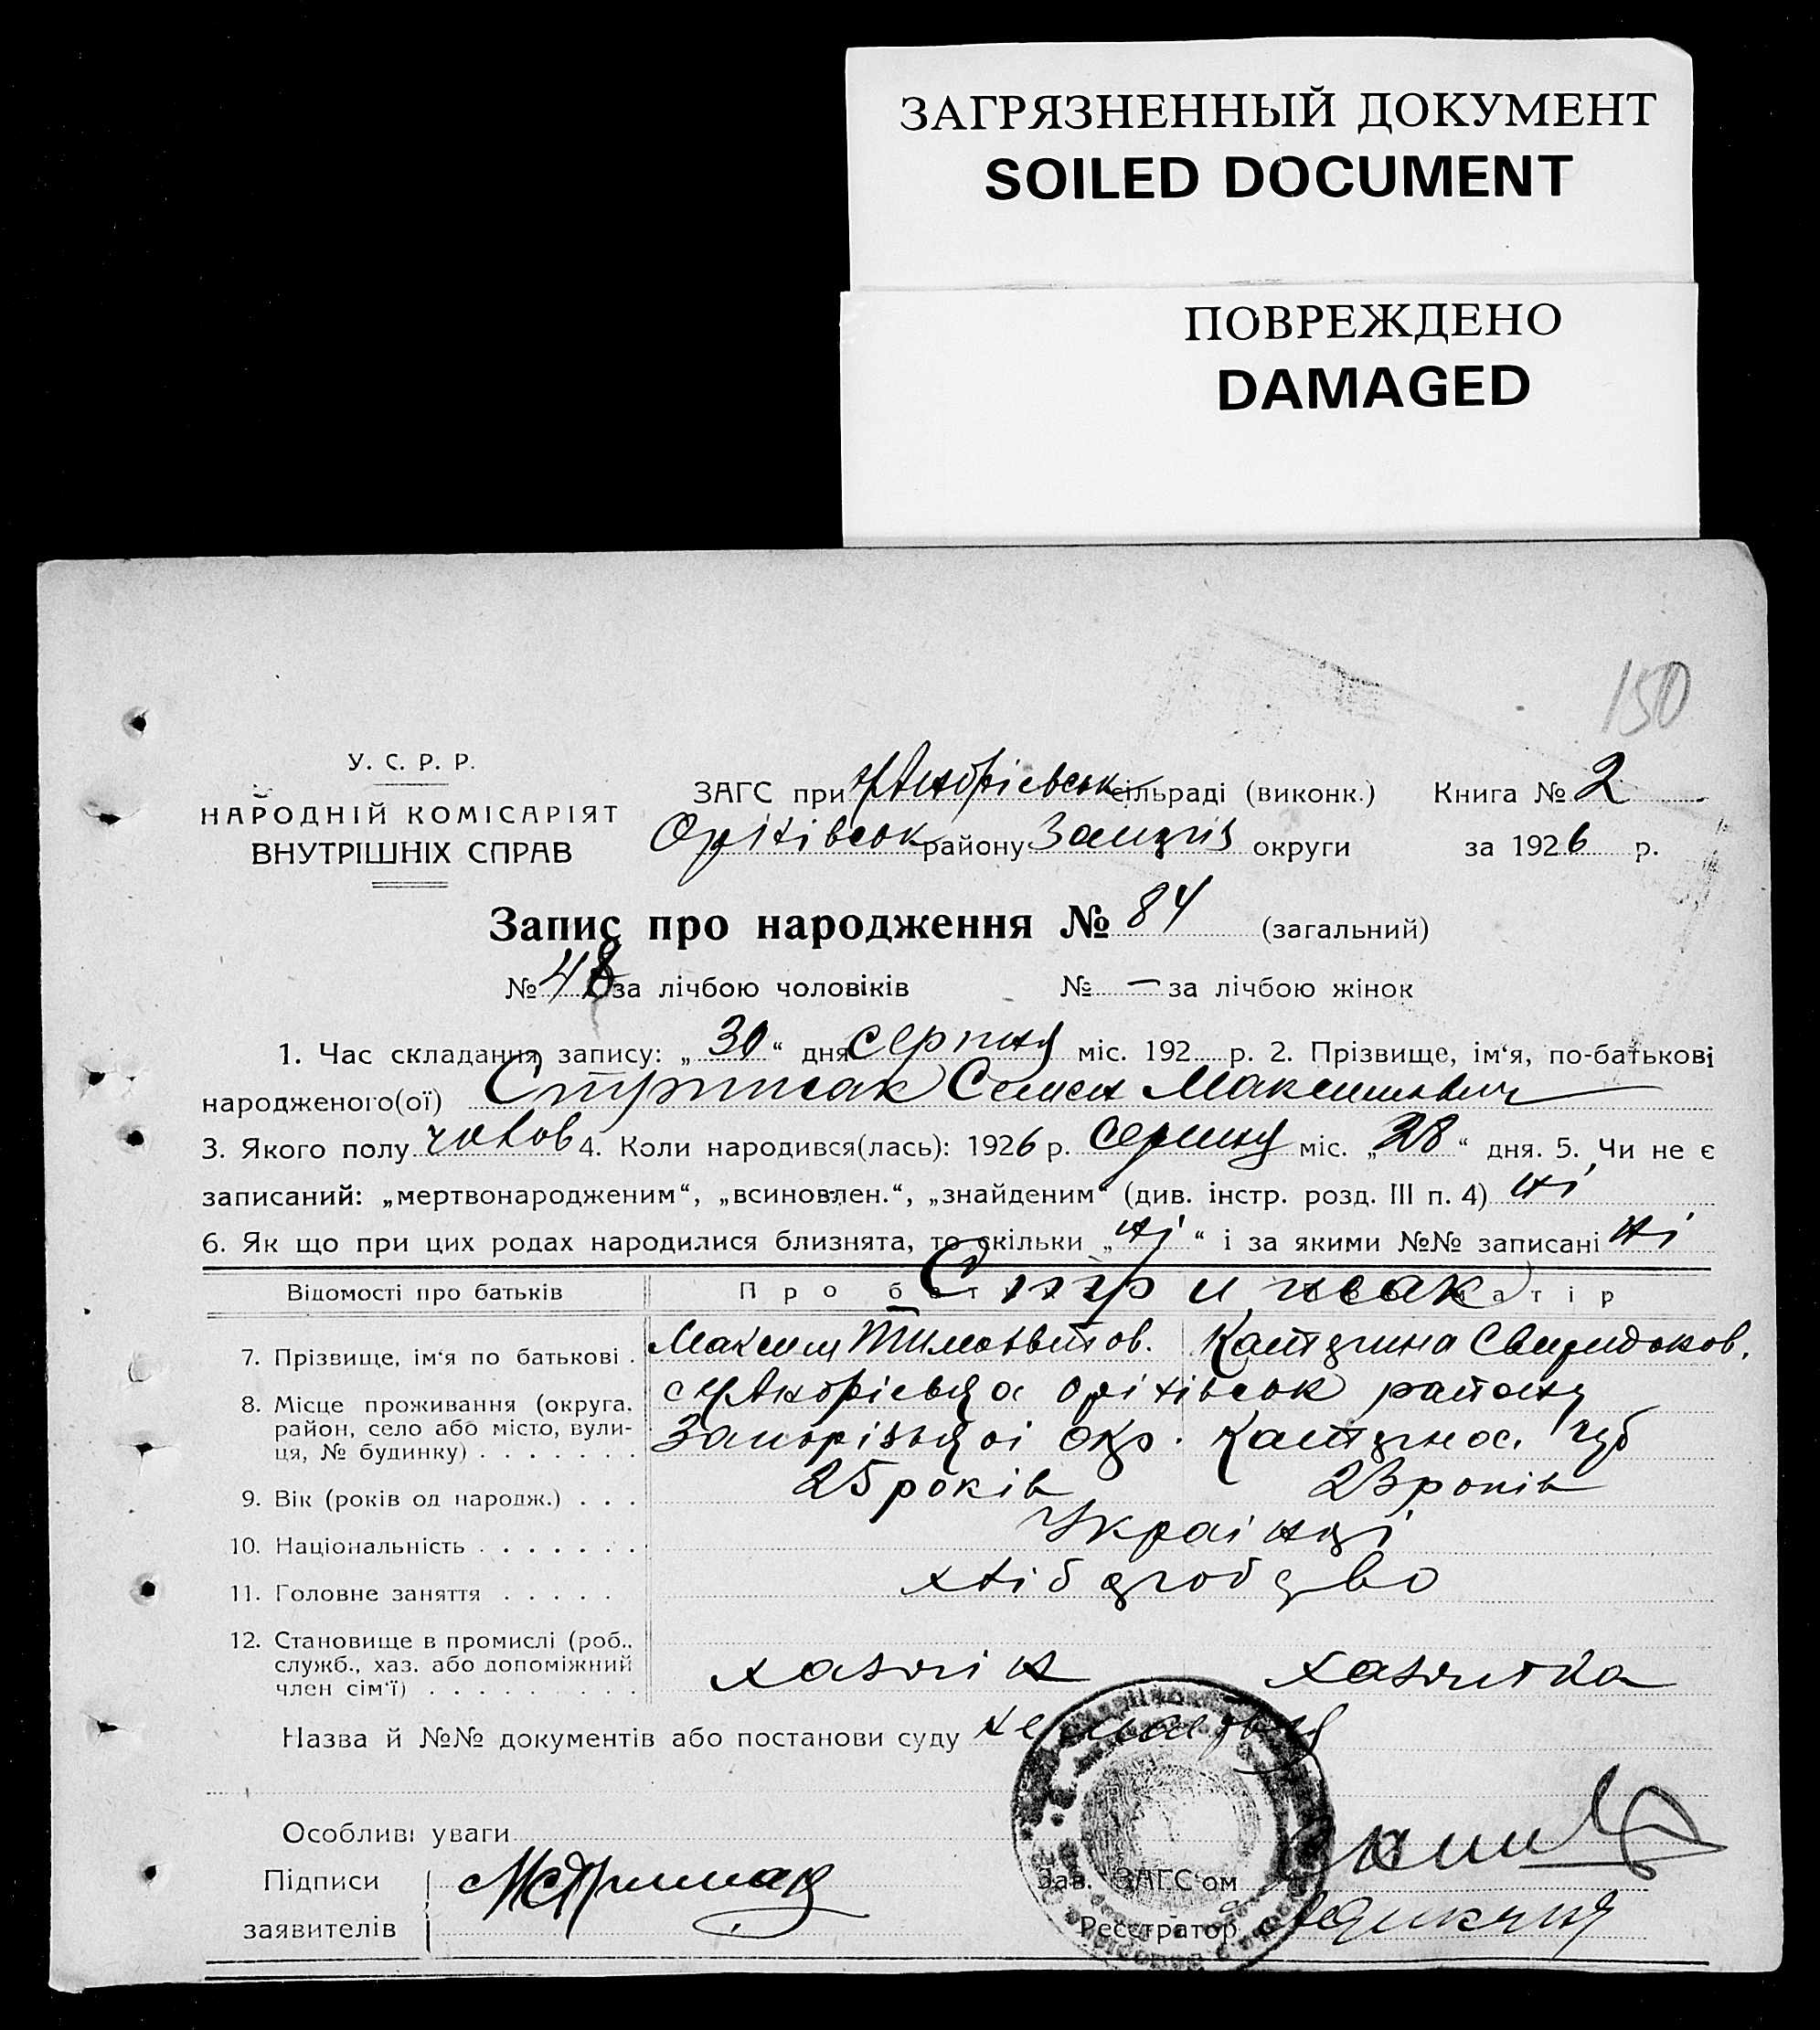 ЗАГРЯЗНЕННЫЙ ДОКУМЕНТ
SOILED DOCUMENT
ПОВРЕЖДЕНО
DAMAGED
150
У. С. Р. Р.
НАРОДНІЙ КОМІСАРІЯТ
ВНУТРІШНІХ СПРАВ
ЗАГС при сільраді (виконк.) Книга № 2
Оріхівськ району округи за 1926 р.
Запис про народження № 84 (загальний)
№ 48 за лічбою чоловіків № — за лічбою жінок
1. Час складання запису: „30“ дня серпня міс. 192 р. 2. Прізвище, ім‘я, по-батькові
народженого(ої) Стрижак Семен Максимович
3. Якого полу чолов 4. Коли народився(лась): 1926 р. серпня міс. „28“ дня. 5. Чи не є
записаний: „мертвонародженим“, „всиновлен.“, „знайденим“ (див. інстр. розд. III п. 4) ні
6. Як що при цих родах народилися близнята, то скільки „ні“ і за якими №№ записані ні
Відомості про батьків Про батька Про матір
Стрижак
7. Прізвище, ім‘я по батькові . Максим Тимофіїтов. Катерина Свиридонов.
8. Місце проживання (округа, район, село або місто, вули-ця, № будинку) . . . . . . .
Оріхівськ району
Запорізької окр. Катеринос. губ
9. Вік (років од народж.) . . . 25 років 23 років
10. Національність . . . . . . . Українці
11. Головне заняття . . . . . хліборобство
12. Становище в промислі (роб., служб., хаз. або допоміжний член сім‘ї) . . . . . . . . . хазяїн хазяйка
Назва й №№ документів або постанови суду
Особливі уваги
Підписи
заявителів
МСтрижак
Зав. ЗАГС‘ом
Реєстратор